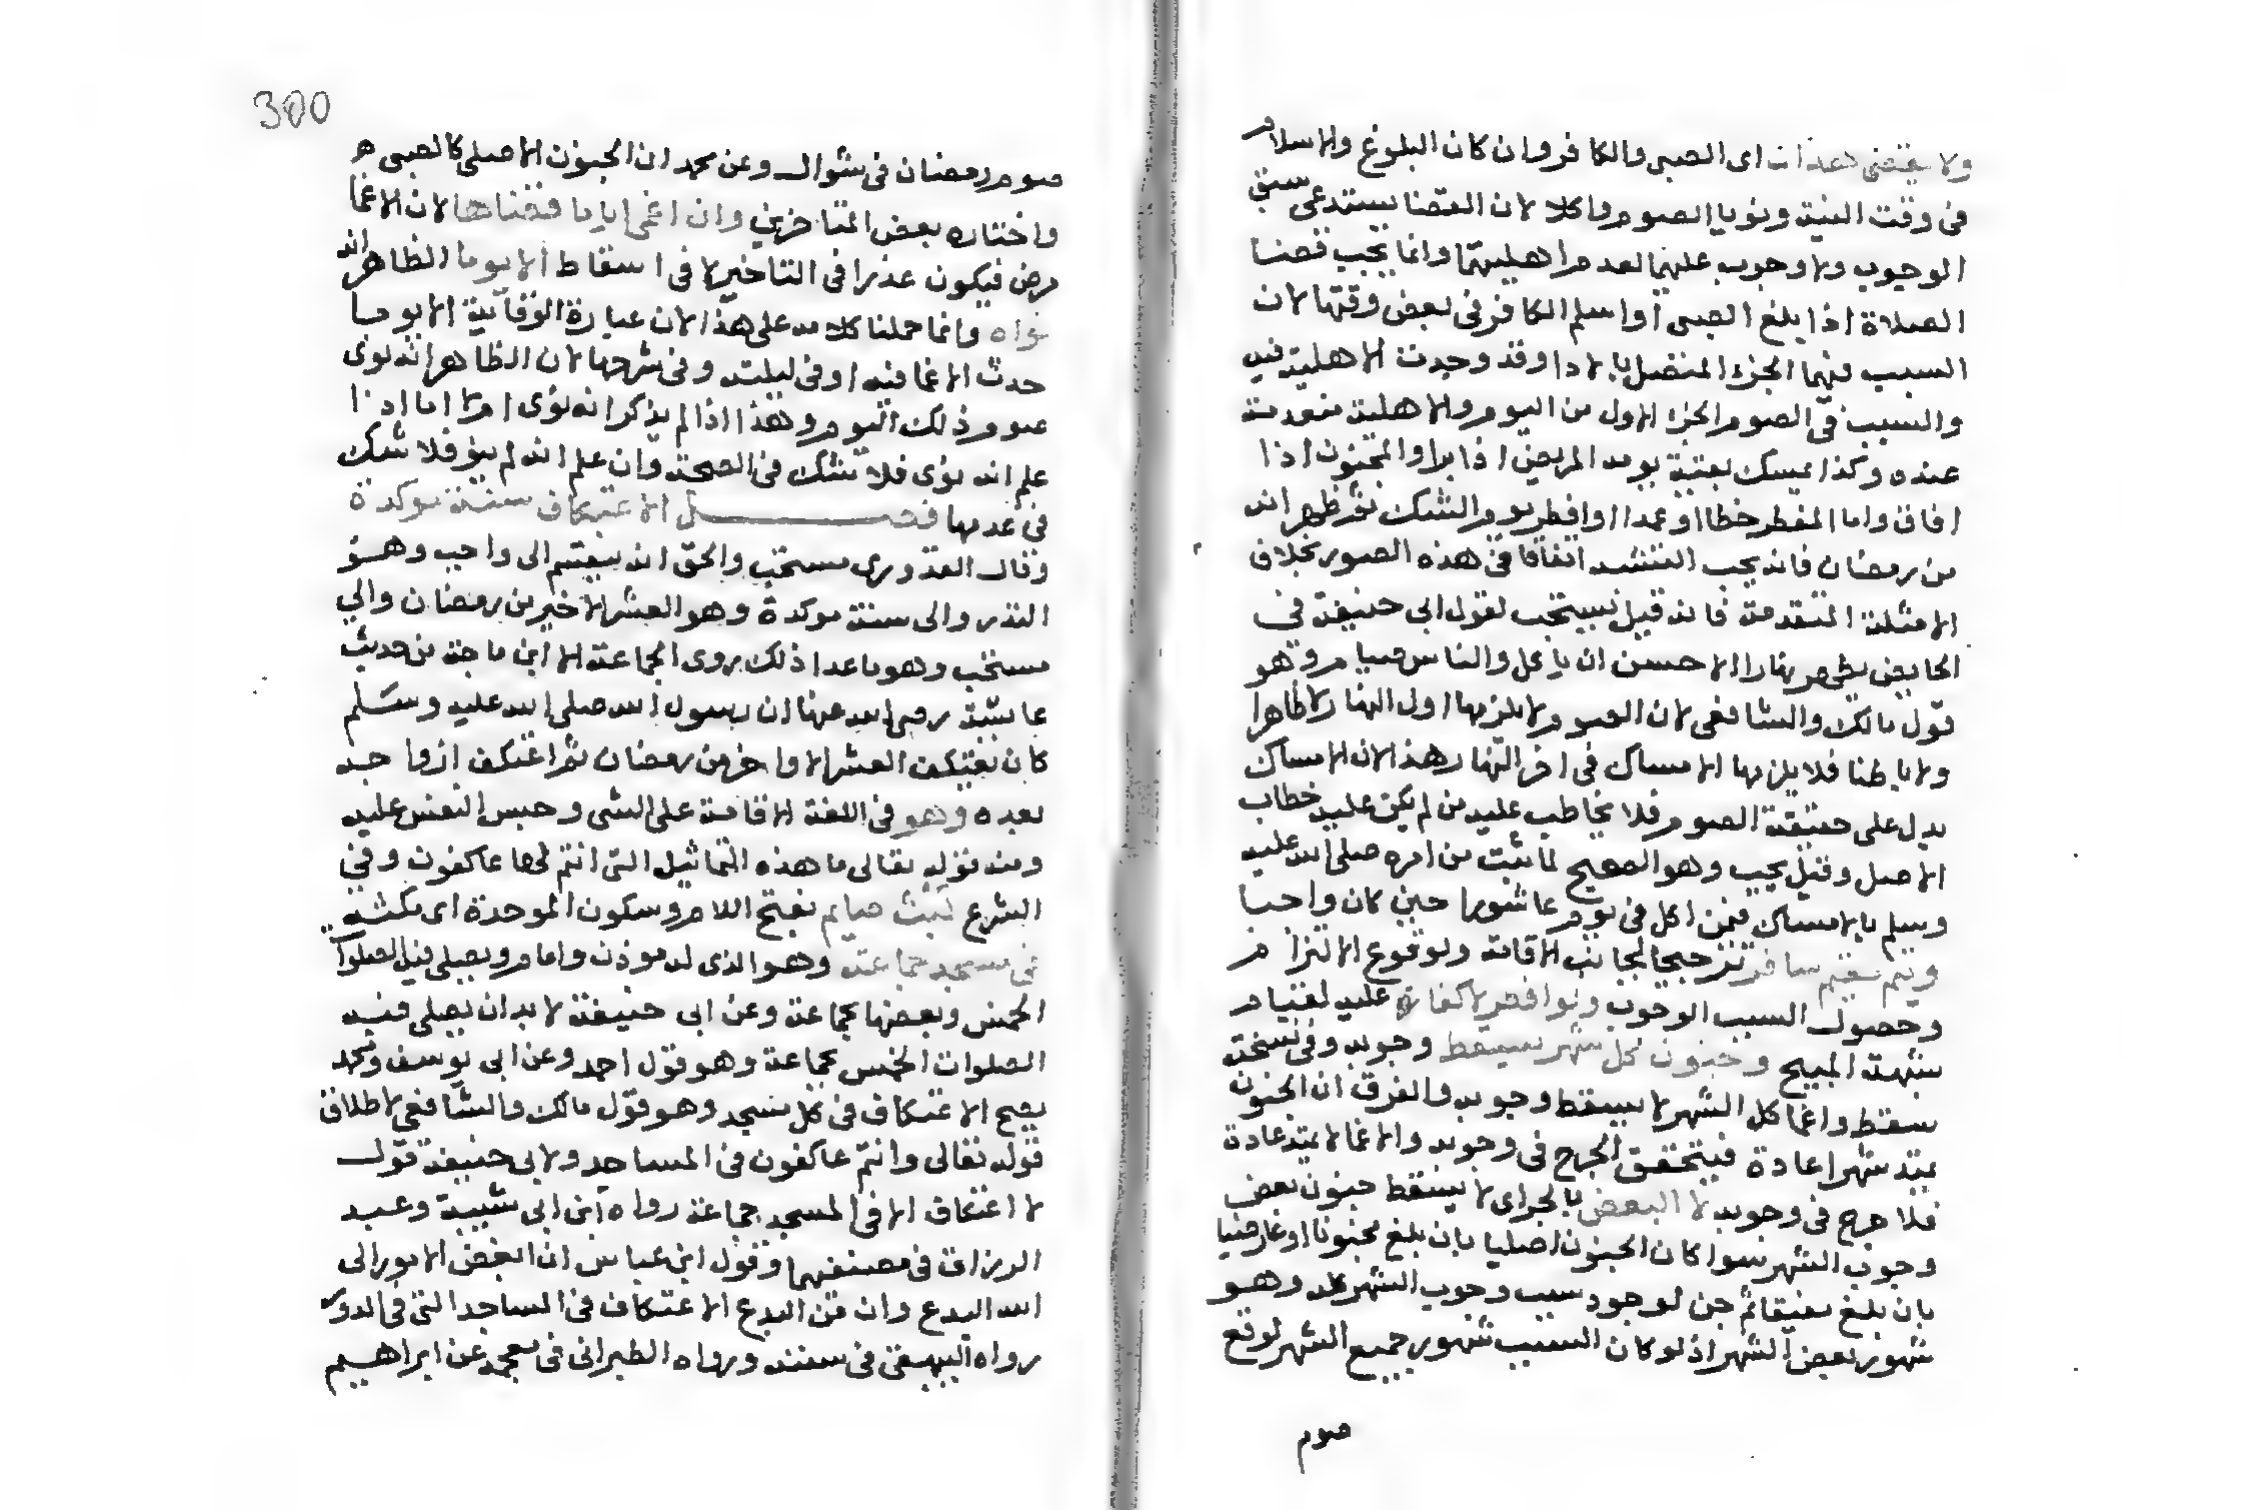 ولا يقضى هذان اى الصبى والكافر وان كان البلوغ والاسلام
فى وقت النية ونويا الصوم واكلا لان القضا يستدعى سبق
الوجوب ولا وجوب عليهما لعدم اهليتهما وانما يجب قضا
الصلاة اذا بلغ الصبى او اسلم الكافر فى بعض وقتها لان
السبب فيهما الجزء المتصل بالادا وقد وجدت الاهلية فيه
والسبب فى الصوم الجزء الاول من اليوم والاهلية منعدمة
عنده وكذا يمسك بقية يومه المريض اذا برا والمجنون اذا
افاق واما المفطر خطا او عمدا او افطر يوم الشك ثم ظهر انه
من رمضان فانه يجب التشبه اتفاقا فى هذه الصور بخلاف
الامثلة المتقدمة فانه قيل يستحب لقول ابى حنيفة فى
الحايض يطهر نهارا لا حسن ان يأكل والناس صيام وهو
قول مالك والشافعى لان الصوم لا يلزمها اول النهار لا ظاهرا
ولا باطنا فلا يلزمها الامساك فى اخر النهار هذا لان الامساك
بدل على حقيقة الصوم فلا يخاطب عليه من لم يكن عليه خطاب
الاصل وقيل يجب وهو الصحيح لما ثبت من امره صلى الله عليه
وسلم بالامساك فمن اكل فى يوم عاشورا حين كان واجبا
ويتم مقيم سافر ترجيحا لجانب الاقامة ولوقوع الالتزام
وحصول السبب الوجوب ولو افطر لا كفارة عليه لقيام
شبهة المبيح وجنون كل شهر يسقط وجوبه وفى نسخة
سقط واغما كل الشهر لا يسقط وجوبه والفرق ان الجنون
يمتد شهرا عادة فيتحقق الحرج فى وجوبه والاغما لا يمتد عادة
فلا حرج فى وجوبه لا البعض بالجر اى لا يسقط جنون بعض
وجوب الشهر سوا كان الجنون اصليا بان بلغ مجنونا او عارضيا
بان بلغ مفيقا ثم جن لوجود سبب وجوب الشهر كله وهو
شهور بعض الشهر اذ لو كان السبب شهور جميع الشهر لوقع
صوم
300
صوم رمضان فى شوال وعن محمد ان الجنون الاصلى كالصبى
واختاره بعض المتاخرين وان اغمى اياما قضاها لان الاغما
مرض فيكون عذرا فى التاخير لا فى اسقاط الا يوما الظاهر انه
نواه وانما حملنا كلامه على هذا لان عبارة الوقاية الا يوما
حدث الاغما فيه او فى ليلته وفى شرحها لان الظاهر انه نوى
صوم ذلك اليوم وهذا اذا لم يذكر انه نوى ام لا اما اذا
علم انه نوى فلا شك فى الصحة وان علم انه لم ينو فلا شك
فى عدمها فصل الاعتكاف سنة موكدة
وقال القدورى مستحب والحق انه ينقسم الى واجب وهو
النذر والى سنة موكدة وهو العشر الاخير من رمضان والى
مستحب وهو ما عدا ذلك روى الجماعة الا ابن ماجة من حديث
عايشة رضى الله عنها ان رسول الله صلى الله عليه وسلم
كان يعتكف العشر الاواخر من رمضان ثم اعتكف ازواجه
بعده وهو فى اللغة الاقامة على الشى وحبس النفس عليه
ومنه قوله تعالى ما هذه التماثيل التى انتم لها عاكفون وفى
الشرع لبث صايم بفتح اللام وسكون الموحدة اى مكثه
فى مسجد جماعة وهو الذى له موذن وامام ويصلى فيه الصلوات
الخمس وبعضها بجماعة وعن ابى حنيفة لا بد ان يصلى فيه
الصلوات الخمس بجماعة وهو قول احمد وعن ابى يوسف ومحمد
يصح الاعتكاف فى كل مسجد وهو قول مالك والشافعى لاطلاق
قوله تعالى وانتم عاكفون فى المساجد ولابى حنيفة قول
لا اعتكاف الا فى المسجد جماعة رواه ابن ابى شيبة وعبد
الرزاق فى مصنفيهما وقول ابن عباس ان ابغض الامور الى
الله البدع وان من البدع الاعتكاف فى المساجد التى فى الدور
رواه البيهقى فى سننه ورواه الطبرانى فى معجمه عن ابراهيم